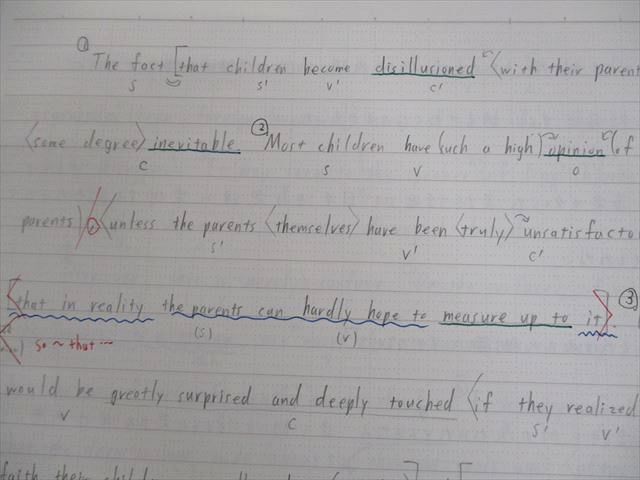 ① The fact [that children become disillusioned <with their parent
S S' V' C'
<some degree> inevitable. ② Most children have (such a high) opinion (of
C S V O
parents), <unless the parents <themselves> have been <truly> unsatisfacto
S' V' C'
that in reality the parents can hardly hope to measure up to it]. ③
(S) (V)
so ~ that …
would be greatly surprised and deeply touched <if they realized
V C S' V'
faith their